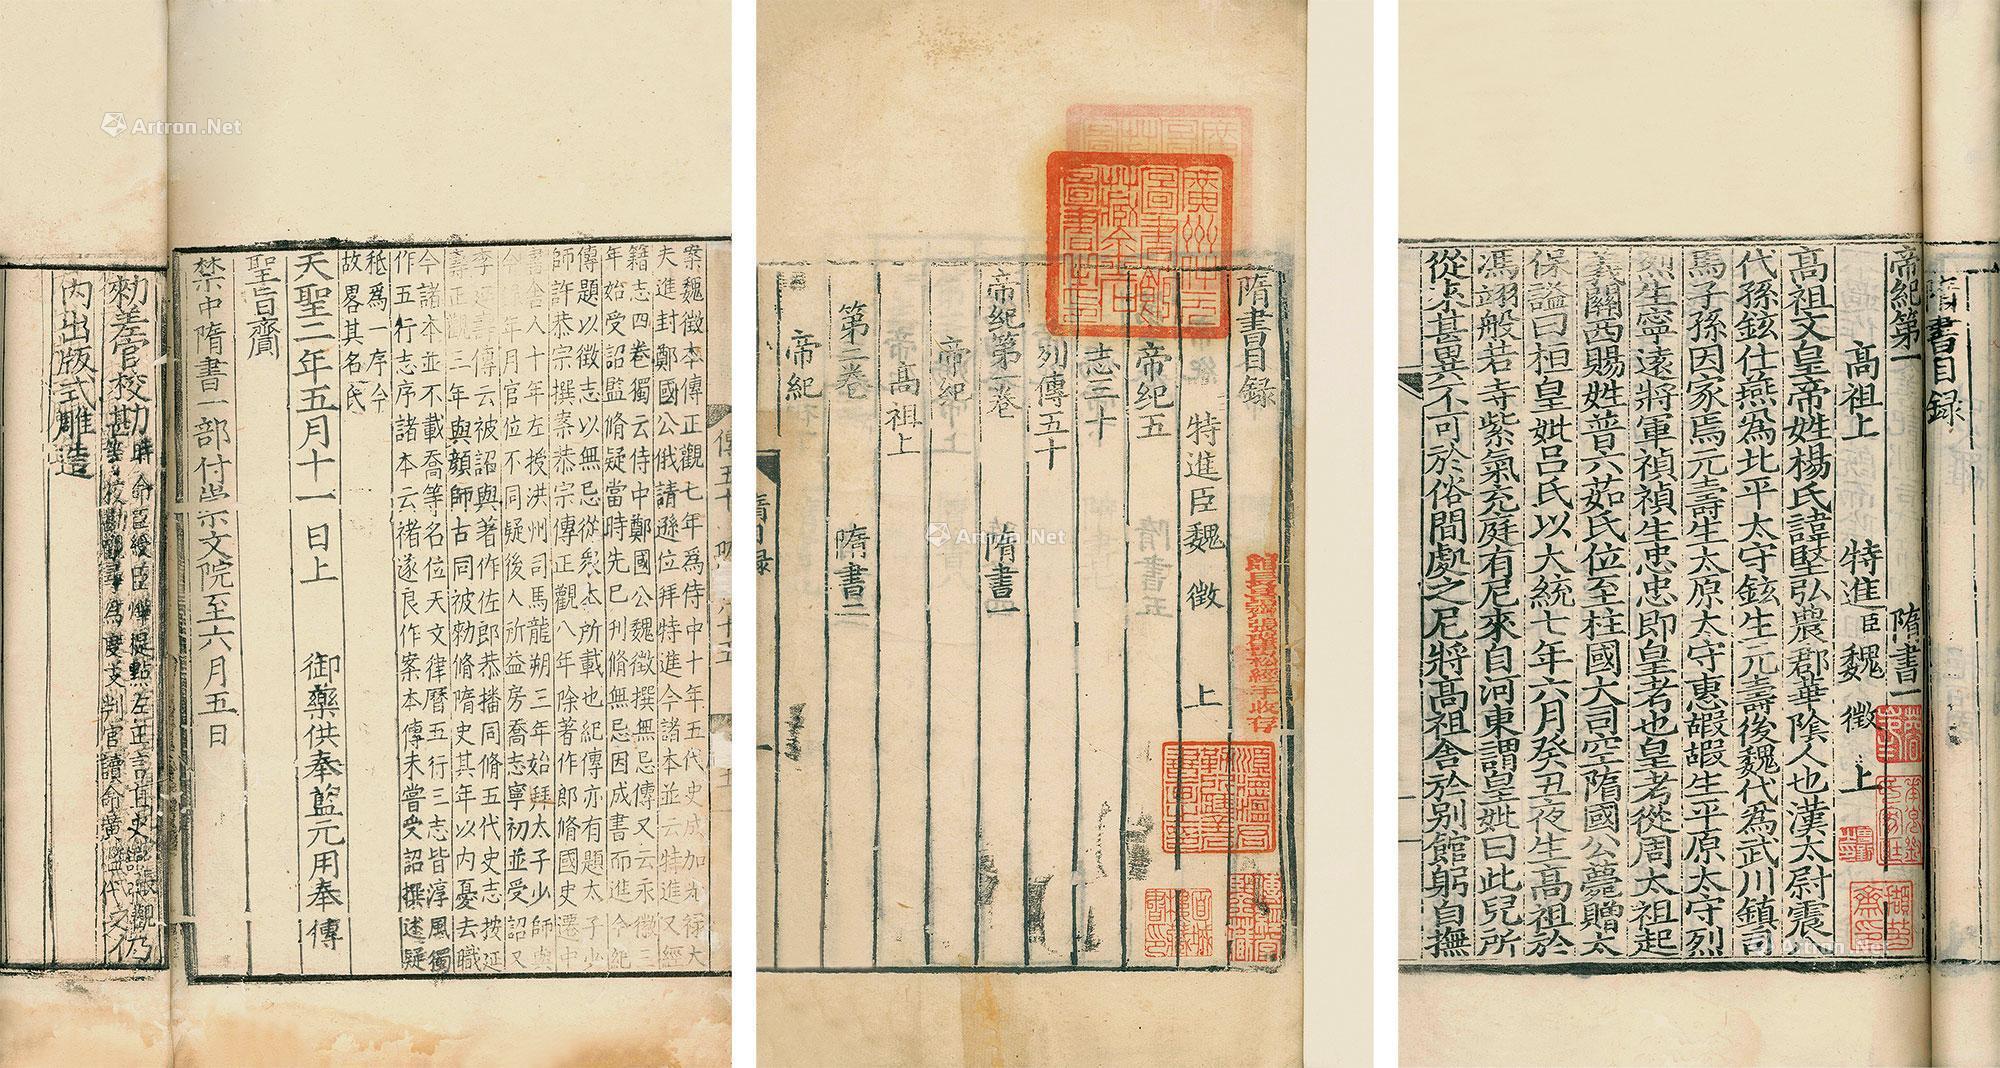 帝紀第一 隋書一
高祖上 特進臣魏 徵 上
高祖文皇帝姓楊氏諱堅弘農郡華陰人也漢太尉震
代孫鉉仕燕為北平太守鉉生元壽後魏代為武川鎮司
馬子孫因家焉元壽生太原太守惠嘏嘏生平原太守烈
烈生寧遠將軍禎禎生忠忠即皇考也皇考從周太祖起
義關西賜姓普六茹氏位至柱國大司空隋國公薨贈太
保謚曰桓皇妣呂氏以大統七年六月癸丑夜生高祖於
馮翊般若寺紫氣充庭有尼來自河東謂皇妣曰此兒所
從來甚異不可於俗間處之尼將高祖舍於別館躬自撫
隋書目録
隋書目録
特進臣魏 徵 上
帝紀五
志三十
列傳五十
帝紀第一卷 隋書一
帝紀
高祖上
第二卷 隋書二
帝紀
廣州州立圖書館藏金石圖書之印
案魏徵本傳正觀七年為侍中十年五代史成加光禄大
夫進封鄭國公俄請遜位拜特進今諸本並云特進又經
籍志四卷獨云侍中鄭國公魏徵撰無忌傳又云永徽三
年始受詔監脩疑當時先已刊脩無忌因成書而進今紀
傳題以徵志以無忌從衆本所載也紀傳亦有題太子少
師許恭宗撰案恭宗傳正觀八年除著作郎脩國史遷中
書舍人十年左授洪州司馬龍朔三年始拜太子少師與
今 年月官位不同疑後人所益房喬志寧初並受詔又
李延壽傳云被詔與著作佐郎恭播同脩五代史志按延
壽正觀三年與顔師古同被勑脩隋史其年以内憂去職
今諸本並不載喬等名位天文律曆五行三志皆淳風獨
作五行志序諸本云褚遂良作案本傳未嘗受詔撰述疑
秪為一序今
故畧其名氏
天聖二年五月十一日上 御藥供奉藍元用奉傳
聖旨齎
禁中隋書一部付崇文院至六月五日
勑差官校勘
内出版式雕造
Artron.Net
Artron.Net
Artron.Net